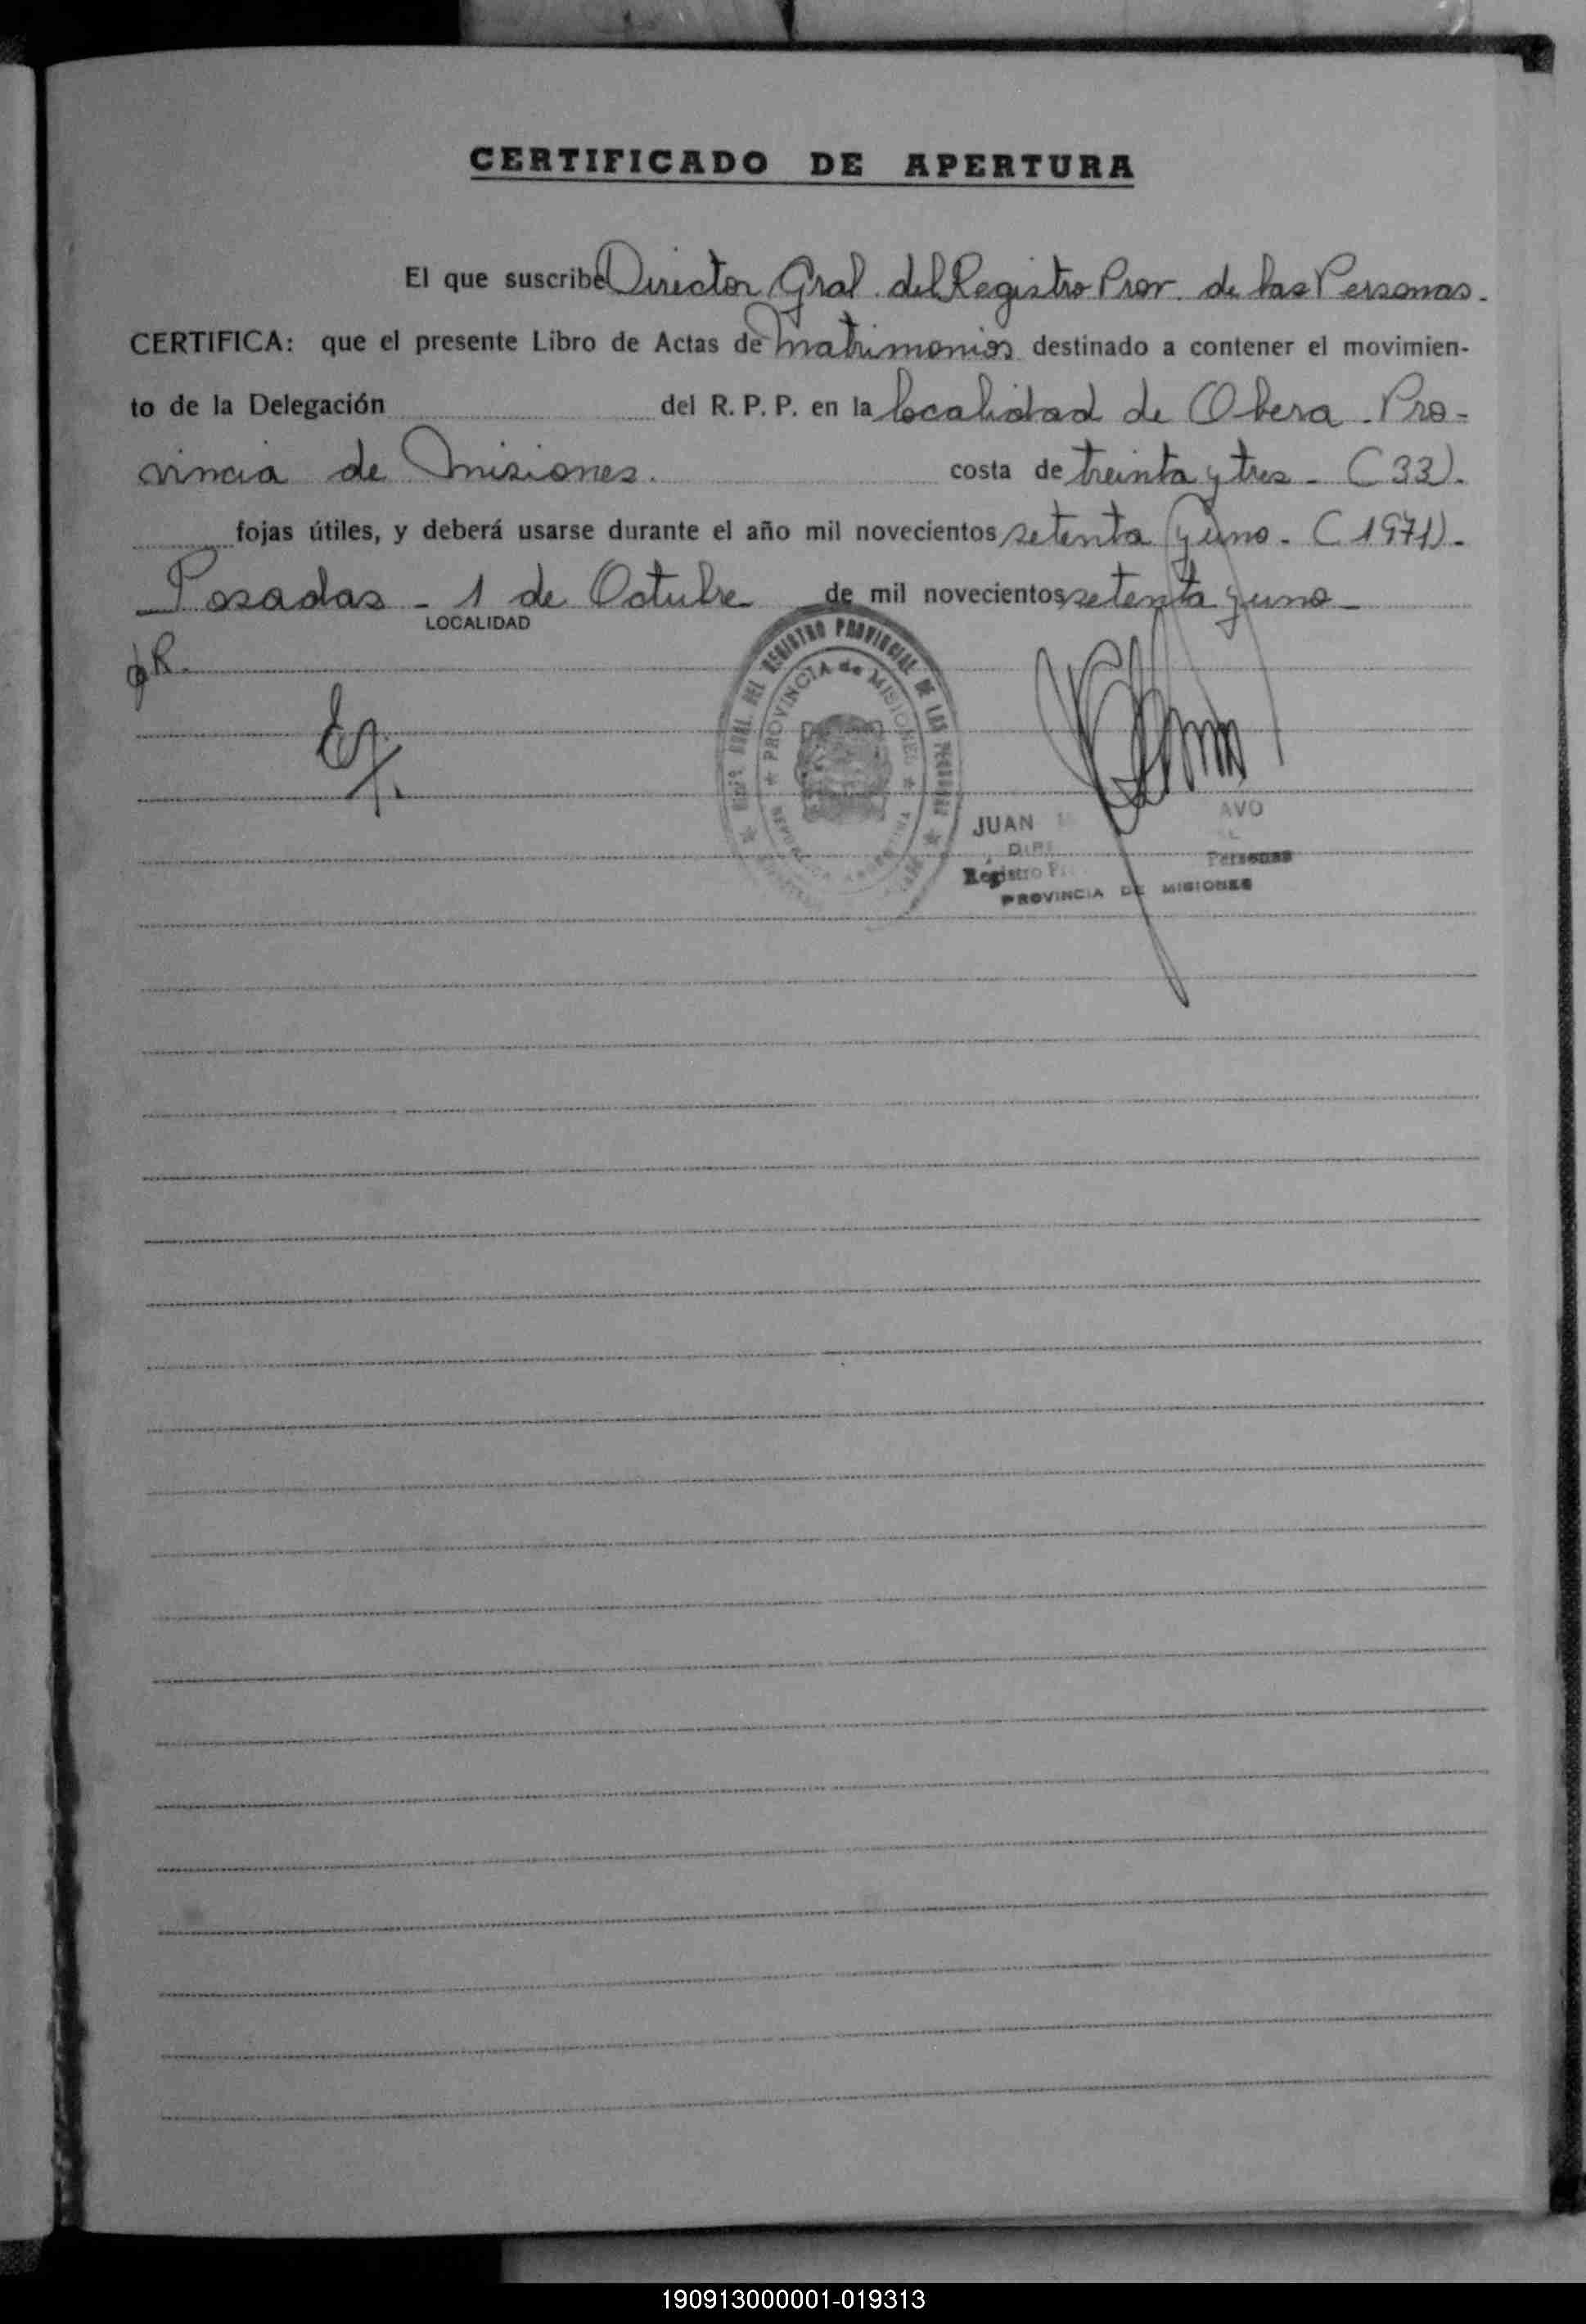 CERTIFICADO DE APERTURA
El que suscribe Director Gral. del Registro Prov. de las Personas.
CERTIFICA: que el presente Libro de Actas de Matrimonios destinado a contener el movimien-
to de la Delegación del R. P. P. en la localidad de Obera. Pro-
vincia de Misiones. costa de treinta y tres - (33).
fojas útiles, y deberá usarse durante el año mil novecientos setenta y uno. (1971).
Posadas - 1 de Octubre de mil novecientos setenta y uno
LOCALIDAD
GRAL. DEL REGISTRO PROVINCIAL DE LAS PERSONAS
PROVINCIA de MISIONES
REPUBLICA ARGENTINA
JUAN AVO
Registro Personas
PROVINCIA DE MISIONES
190913000001-019313